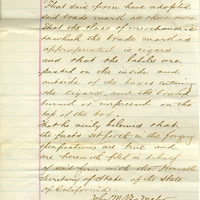 That said firm have adopted
said trade mark as their own
That the class of merchandise
to which the trade mark is
appropriated is cigars
and that the labels are
pasted on the inside and
outside of the boxes containing
the cigars, and the brand
burned or imprinted on
the top of the box.
That he verily believes that
the facts set forth in the foregoing
specifications are true and
are herewith filed in behalf
of said firm with the Honorable
Secretary of State of the State
of California
John